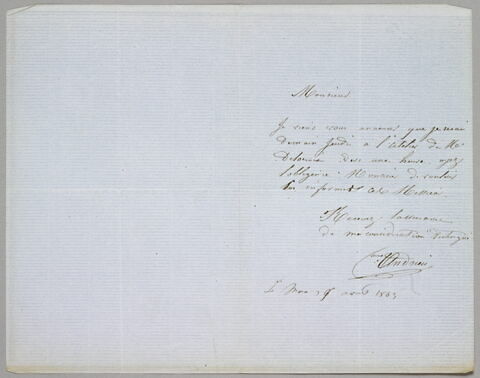 Monsieur
Je viens vous annoncer que je serai
demain Jeudi à l'atelier de Mr
Delacroix une heure, ayez
l'obligeance Monsieur de vouloir
en informer ces Messieurs
Recevez l'assurance
de ma considération distinguée
Andrieu
1853